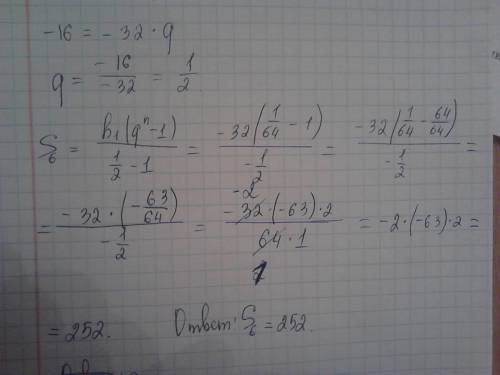 -16 = -32 · q
q = -16 / -32 = 1/2
S₆ = b₁(qⁿ-1) / (1/2 - 1) = -32(1/64 - 1) / (-1/2) = -32(1/64 - 64/64) / (-1/2) =
= -32 · (-63/64) / (-1/2) = -2 -32 · (-63) · 2 / (64 · 1) 1 = -2 · (-63) · 2 =
= 252. Ответ: S₆ = 252.